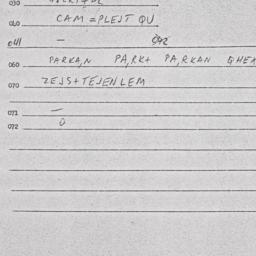 030
040 CAM=PLEJT QU
041 — 042
060 PARKA,N PA,RK+ PA,RKAN QHEA
070 ZEJS+TEJENLEM
071 —
072 O